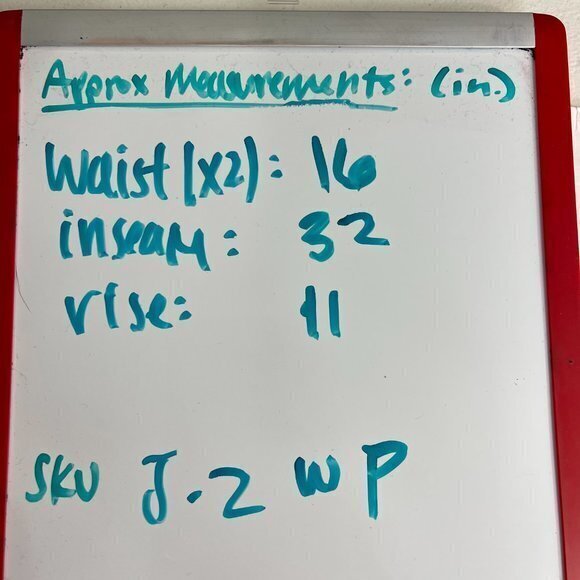 Approx Measurements: (in.)
Waist (x2): 16
inseam: 32
rise: 11
SKU J-2 WP